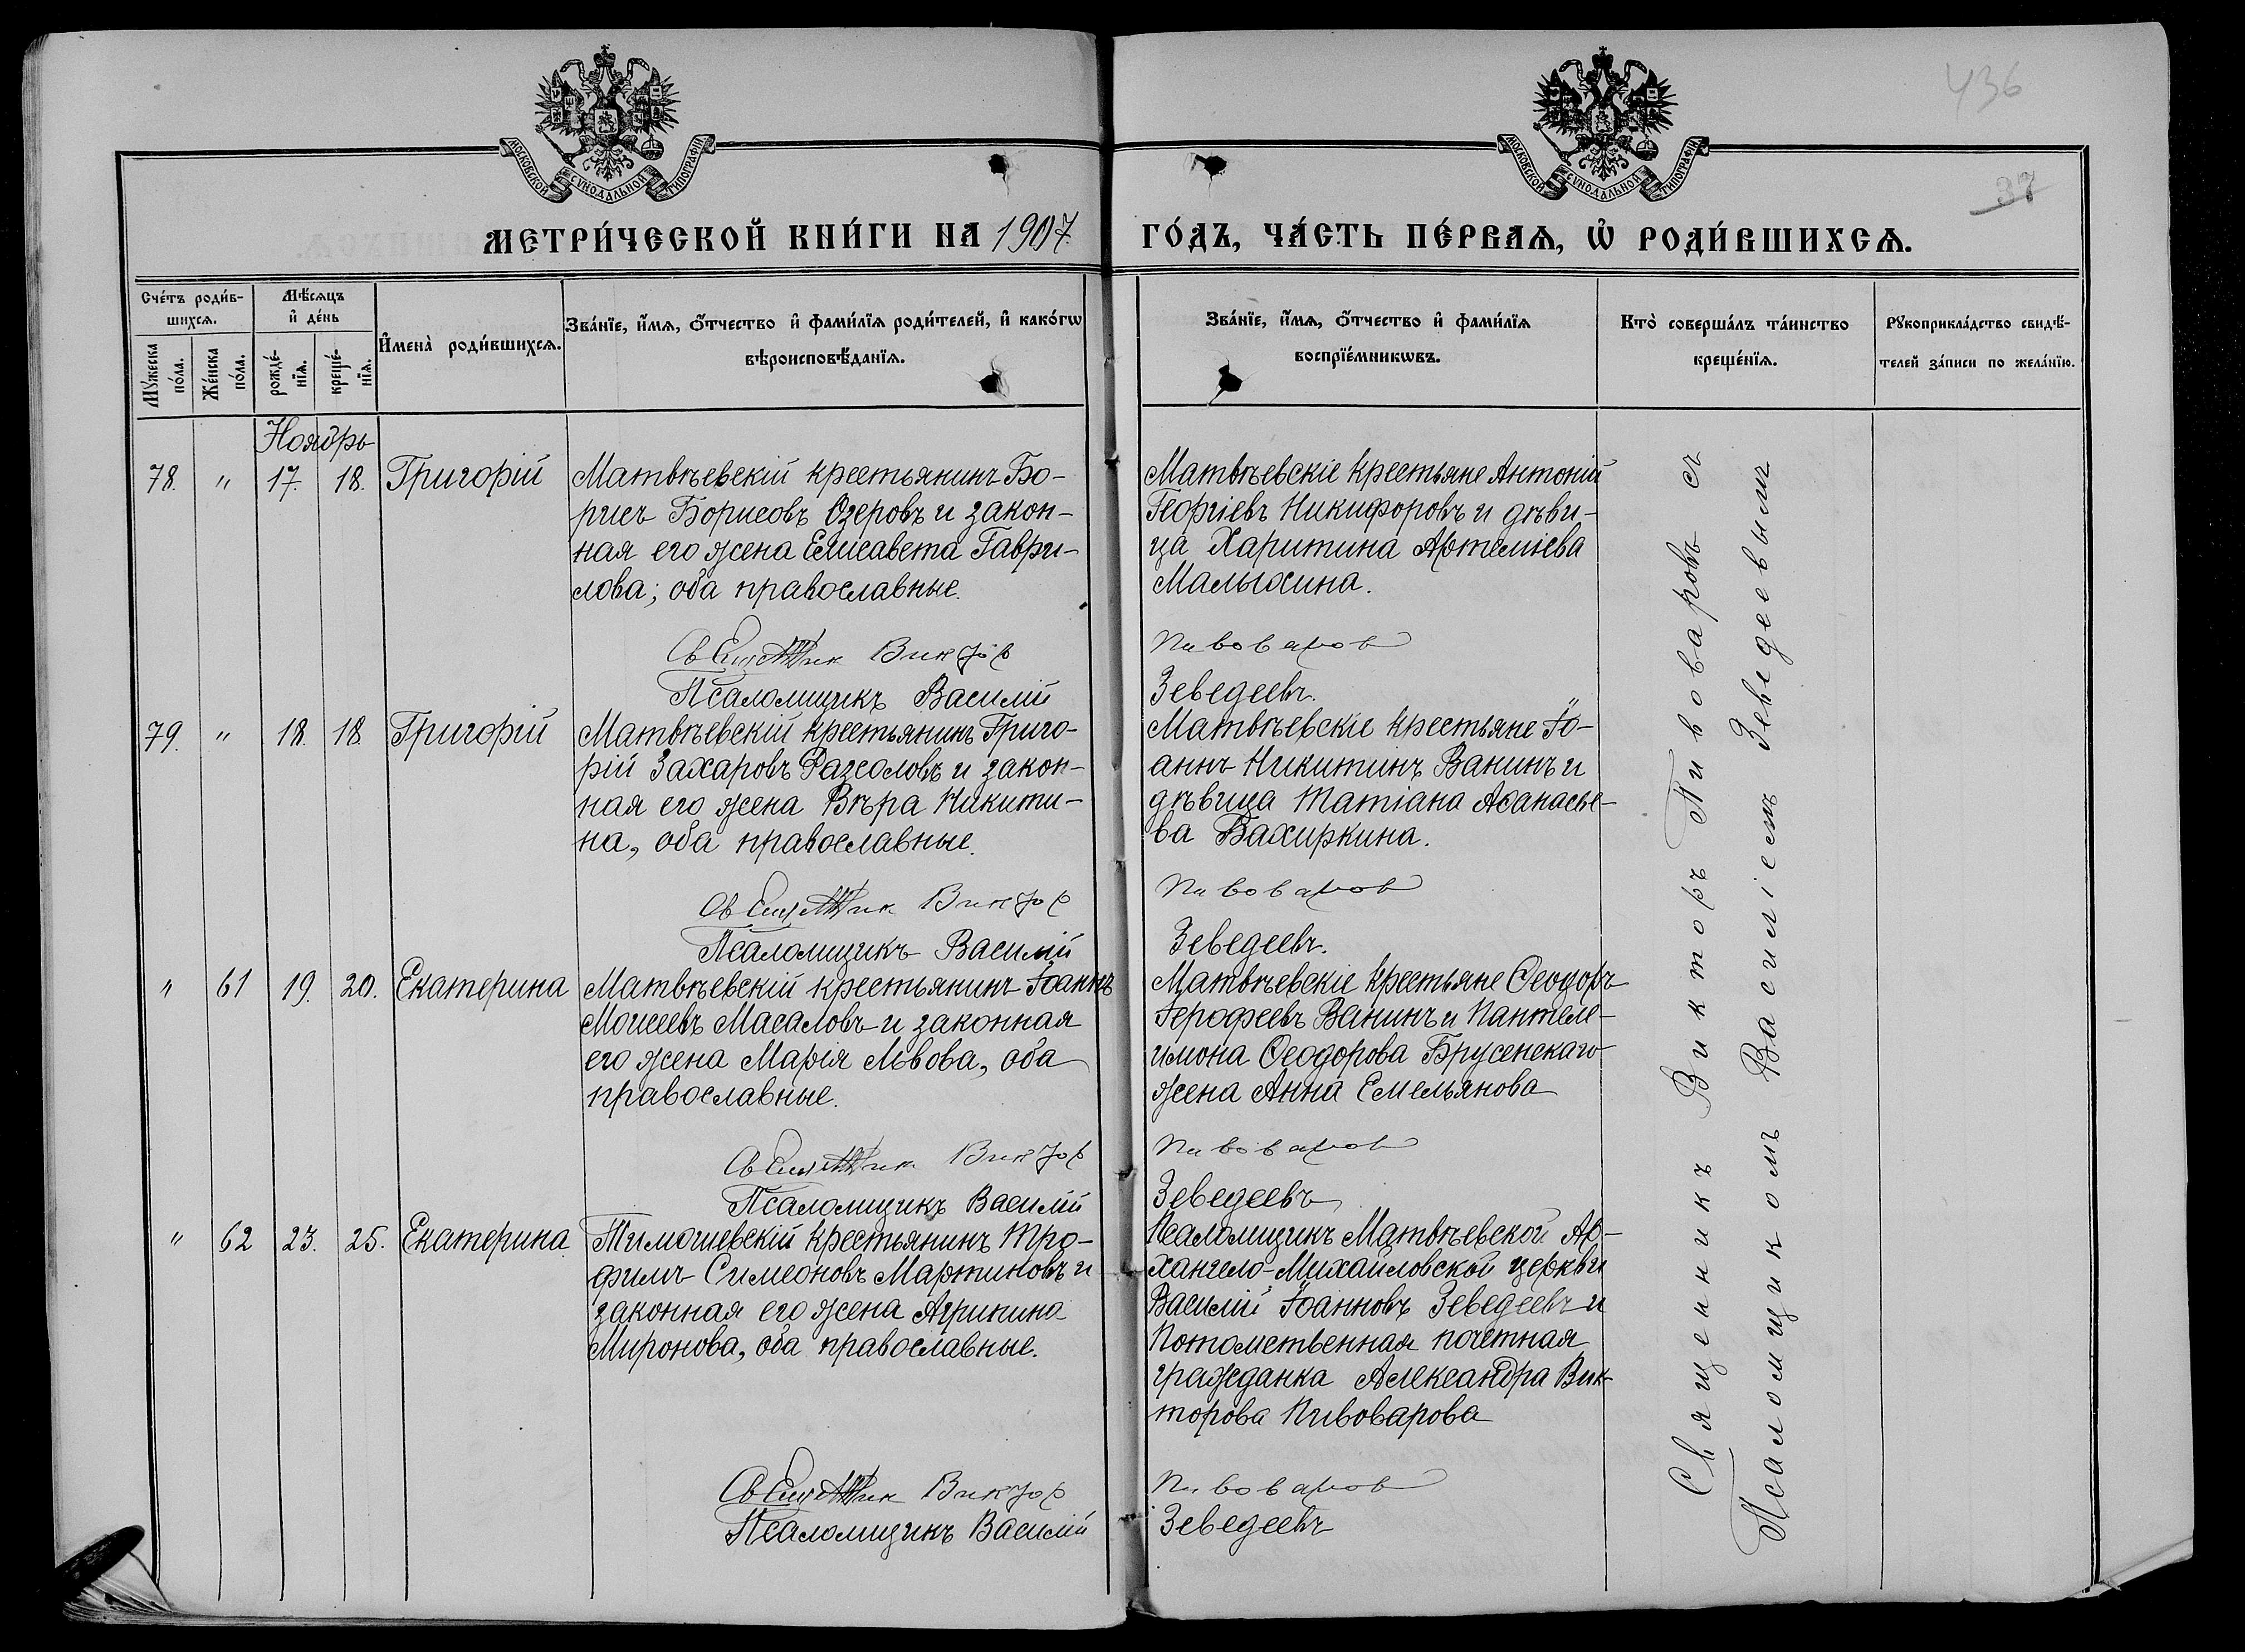 436
37
МОСКОВСКОЙ СѴНОДАЛЬНОЙ ТИПОГРАФІИ
МОСКОВСКОЙ СѴНОДАЛЬНОЙ ТИПОГРАФІИ
МЕТРИ́ЧЕСКОЙ КНИ́ГИ НА 1907 ГО́ДЪ, ЧА́СТЬ ПЕ́РВАѦ, Ѡ҆ РОДИ́ВШИХСѦ.
Сче́тъ роди́в-
шихсѧ.
Мѣ́сѧцъ
и҆ де́нь
Му́жеска
по́ла.
Же́нска
по́ла.
рожде́-
нїѧ.
креще́-
нїѧ.
И҆мена̀ роди́вшихсѧ.
Зва́нїе, и҆́мѧ, ѻ҆́тчество и҆ фами́лїѧ роди́телей, и҆ како́гѡ
вѣроисповѣ́данїѧ.
Зва́нїе, и҆́мѧ, ѻ҆́тчество и҆ фами́лїѧ
воспрїе́мникѡвъ.
Кто̀ соверша́лъ та́инство
креще́нїѧ.
Рꙋкоприкла́дство свидѣ́-
телей за́писи по жела́нїю.
Ноябрь
78. " 17. 18. Григорій
Матвѣевскій крестьянинъ Бо-
рисъ Борисовъ Озеровъ и закон-
ная его жена Елисавета Гаври-
лова; оба православные.
Священник Виктор
Псаломщикъ Василій
Матвѣевскіе крестьяне Антоній
Георгіевъ Никифоровъ и дѣви-
ца Харитина Артеміева
Малыхина.
Пивоваров
Зеведеевъ.
79. " 18. 18. Григорій
Матвѣевскій крестьянинъ Григо-
рій Захаровъ Разсоловъ и закон-
ная его жена Вѣра Никити-
на, оба православные.
Священник Виктор
Псаломщикъ Василій
Матвѣевскіе крестьяне Іо-
аннъ Никитинъ Ванинъ и
дѣвица Татіана Аѳанасье-
ва Бахиркина.
Пивоваров
Зеведеевъ.
" 61 19. 20. Екатерина
Матвѣевскій крестьянинъ Іоаннъ
Моисеевъ Масаловъ и законная
его жена Марія Львова, оба
православные.
Священник Виктор
Псаломщикъ Василій
Матвѣевскіе крестьяне Ѳеодоръ
Іерофеевъ Ванинъ и Пантеле-
имона Ѳеодорова Брусенскаго
жена Анна Емельянова
Пивоваров
Зеведеевъ
" 62 23. 25. Екатерина
Тимошевскій крестьянинъ Тро-
фимъ Симеоновъ Мартиновъ и
законная его жена Агрипина
Миронова, оба православные.
Священник Виктор
Псаломщикъ Василій
Псаломщикъ Матвѣевской Ар-
хангело-Михаиловской церкви
Василій Іоанновъ Зеведеевъ и
Потомственная почетная
гражданка Александра Вик-
торова Пивоварова
Пивоваров
Зеведеевъ
Священникъ Викторъ Пивоваровъ съ
Псаломщикомъ Василіемъ Зеведеевымъ